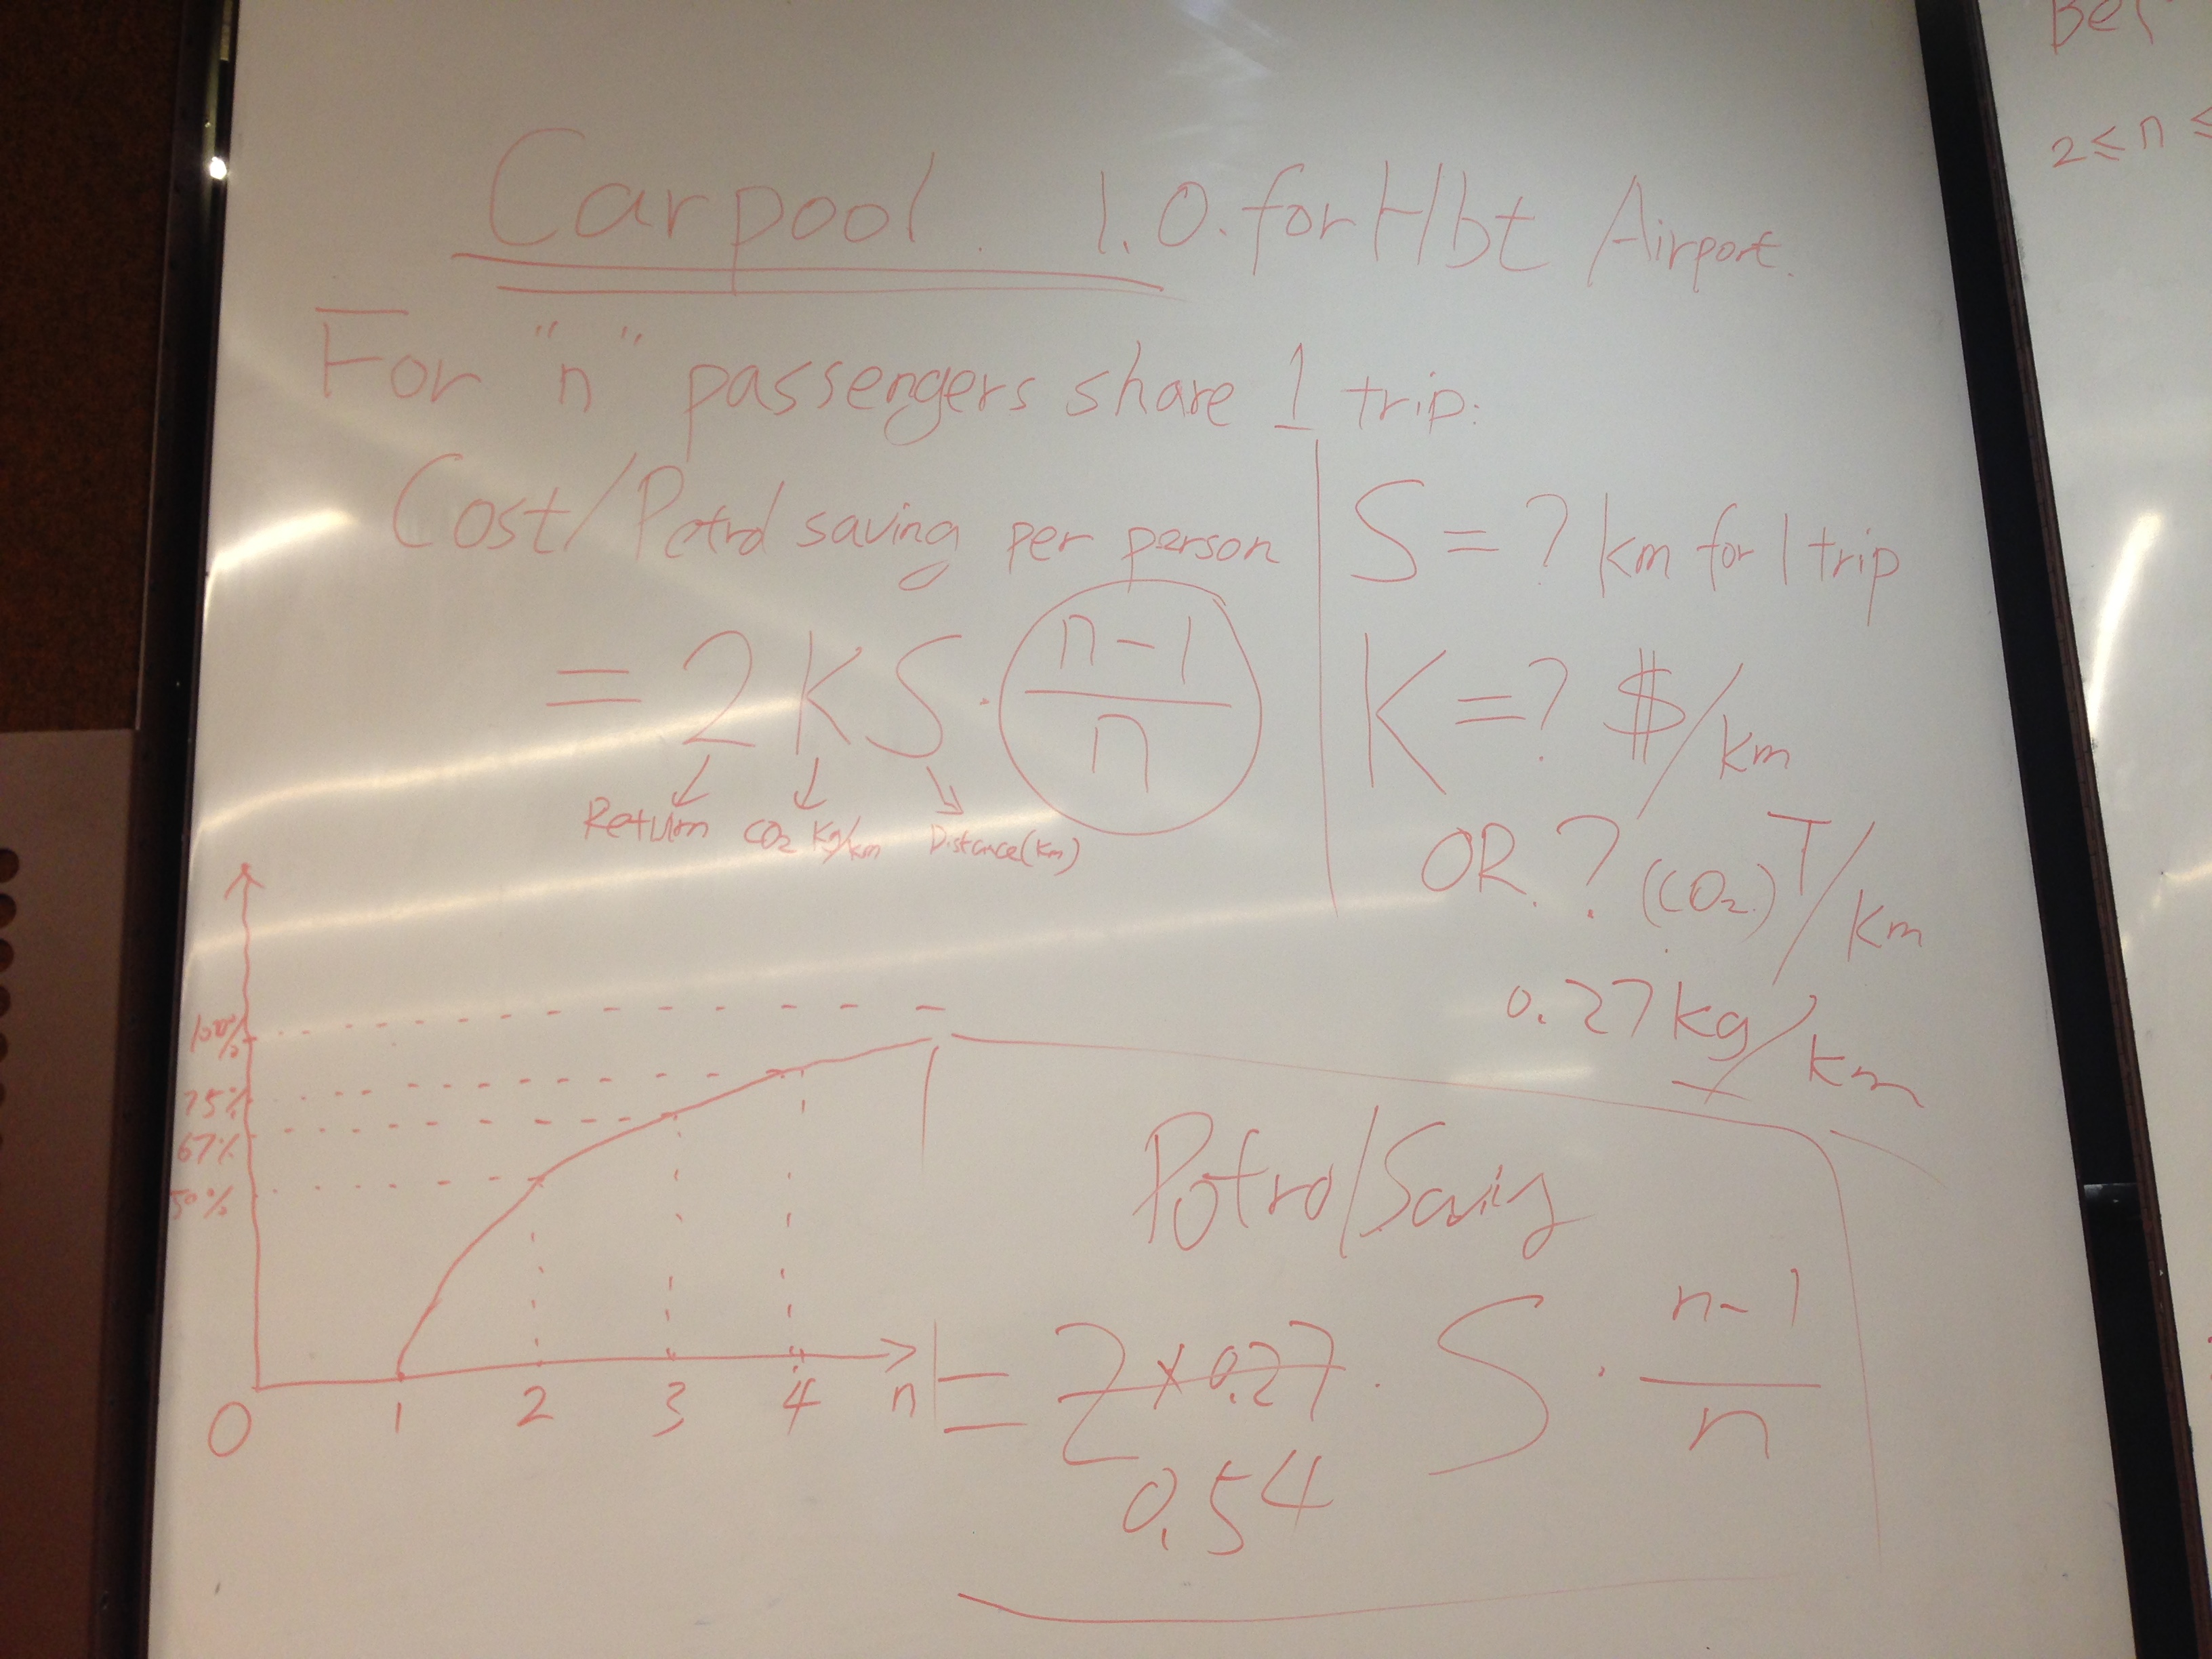 Carpool 1.0. for Hbt Airport.
For "n" passengers share 1 trip:
Cost/Petrol saving per person
= 2KS · n-1
n
Return CO2 kg/km Distance(km)
S = ? km for 1 trip
K = ? $/km
OR ? (CO2) T/km
0.27kg/km
100%
75%
67%
50%
0 1 2 3 4 n
Petrol/Saving
= 2 x 0.27 · S · n-1
n
0.54
2 ≤ n ≤